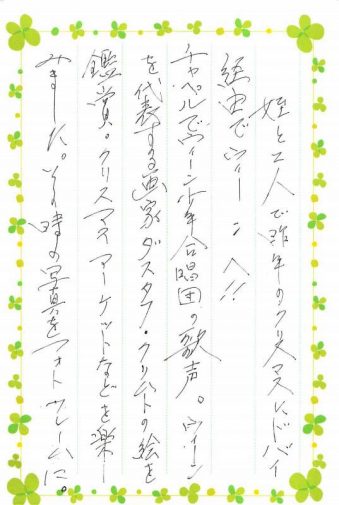 姪と二人で昨年のクリスマスにドバイ
経由でウィーンへ!!
チャペルでウィーン少年合唱団の歌声。ウィーン
を代表する画家グスタフ・クリムトの絵を
鑑賞。クリスマスマーケットなどを楽し
みました。その時の写真をフォトフレームに。